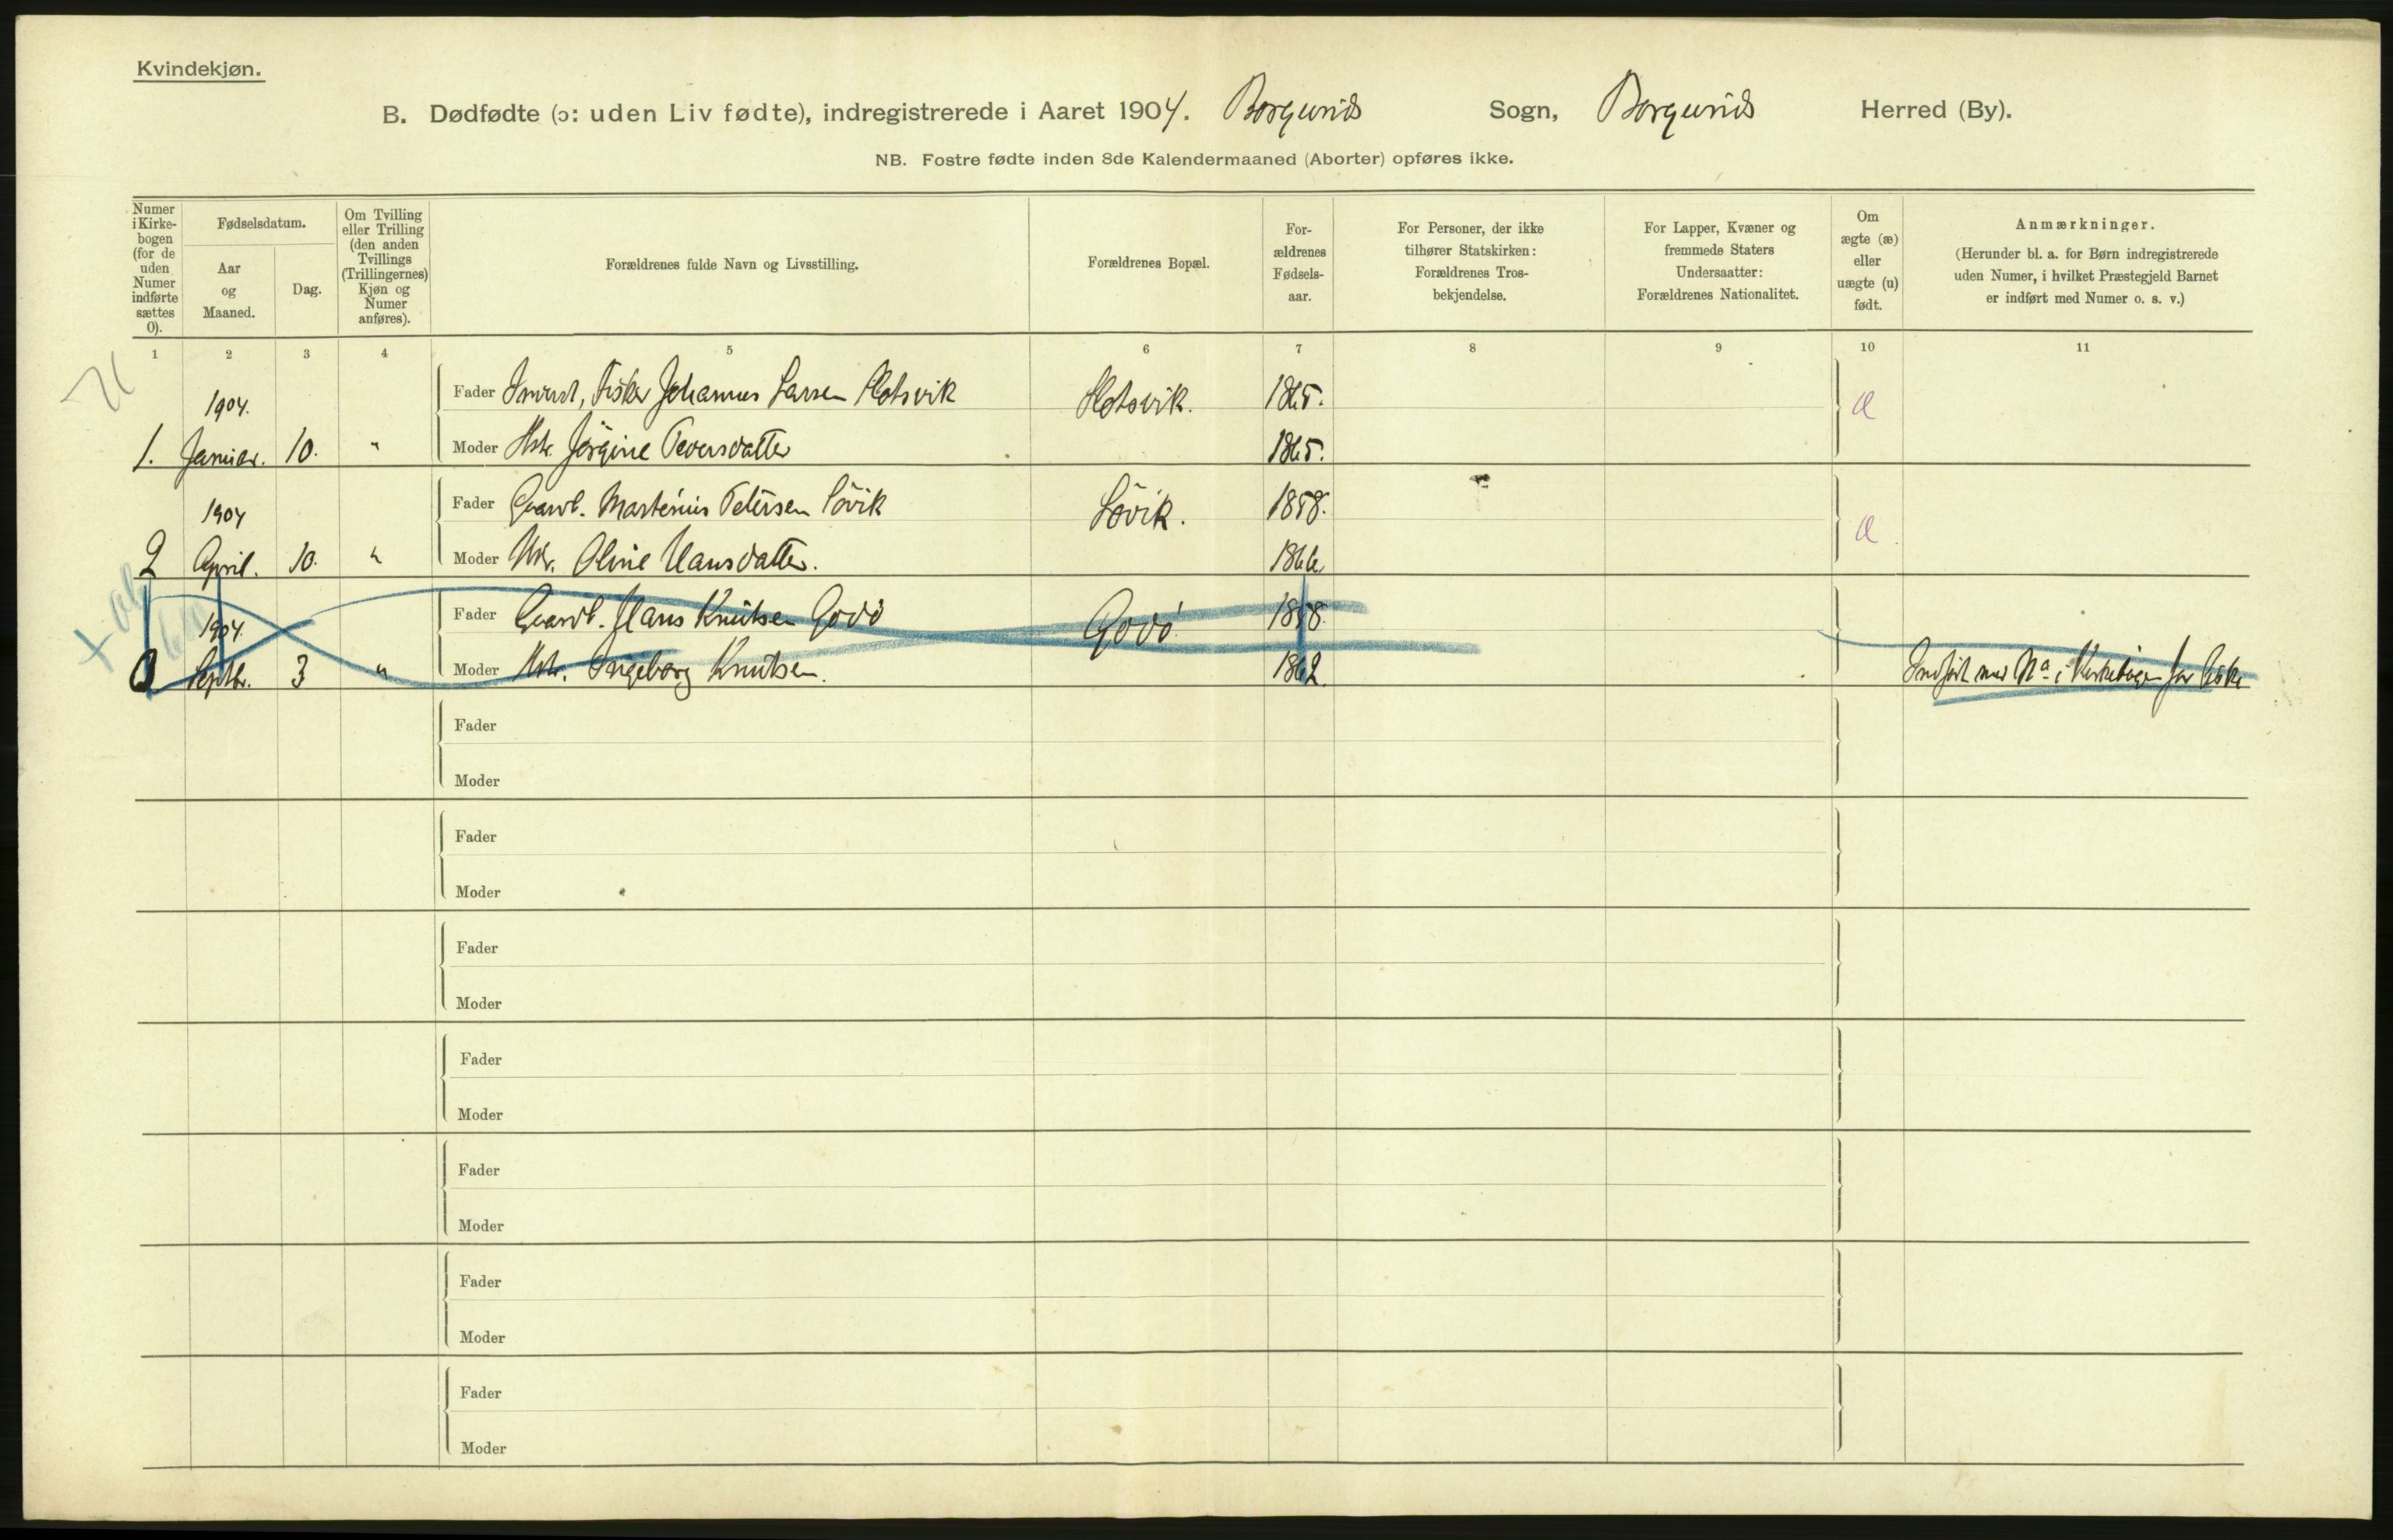 Kvindekjøn.
B. Dødfødte (ɔ: uden Liv fødte), indregistrerede i Aaret 1904. Borgunds Sogn, Borgunds Herred (By).
NB. Fostre fødte inden 8de Kalendermaaned (Aborter) opføres ikke.
Numer i Kirke- bogen (for de uden Numer indførte sættes 0).
Fødselsdatum.
Aar og Maaned.
Dag.
Om Tvilling eller Trilling (den anden Tvillings (Trillingernes) Kjøn og Numer anføres).
Forældrenes fulde Navn og Livsstilling.
Forældrenes Bopæl.
For- ældrenes Fødsels- aar.
For Personer, der ikke tilhører Statskirken: Forældrenes Tros- bekjendelse.
For Lapper, Kvæner og fremmede Staters Undersaatter: Forældrenes Nationalitet.
Om ægte (æ) eller uægte (u) født.
Anmærkninger.
(Herunder bl. a. for Børn indregistrerede uden Numer, i hvilket Præstegjeld Barnet er indført med Numer o. s. v.)
1 2 3 4 5 6 7 8 9 10 11
1904. Fader Fisker Johannes Larsen Flotsvik Flotsvik. 1865. æ
1. Januar. 10. " Moder Hstr. Jørgine Pedersdatter 1865.
1904 Fader Gaardb. Martinius Petersen Løvik Løvik. 1858. æ
2 April. 10. " Moder Hstr. Oline Hansdatter. 1866.
1904. Fader Gaardb. Hans Knutsen Godö Godö. 1858.
0 Septbr. 3 " Moder Hstr. Ingeborg Knutsen. 1862. Indført med No i Kirkebogen for
Fader
Moder
Fader
Moder
Fader
Moder
Fader
Moder
Fader
Moder
Fader
Moder
Fader
Moder